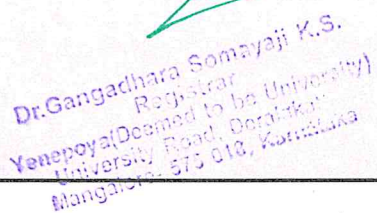 Dr.Gangadhara Somayaji K.S.
Registrar
Yenepoya(Deemed to be University)
University Road, Deralakatte
Mangalore- 575 018, Karnataka